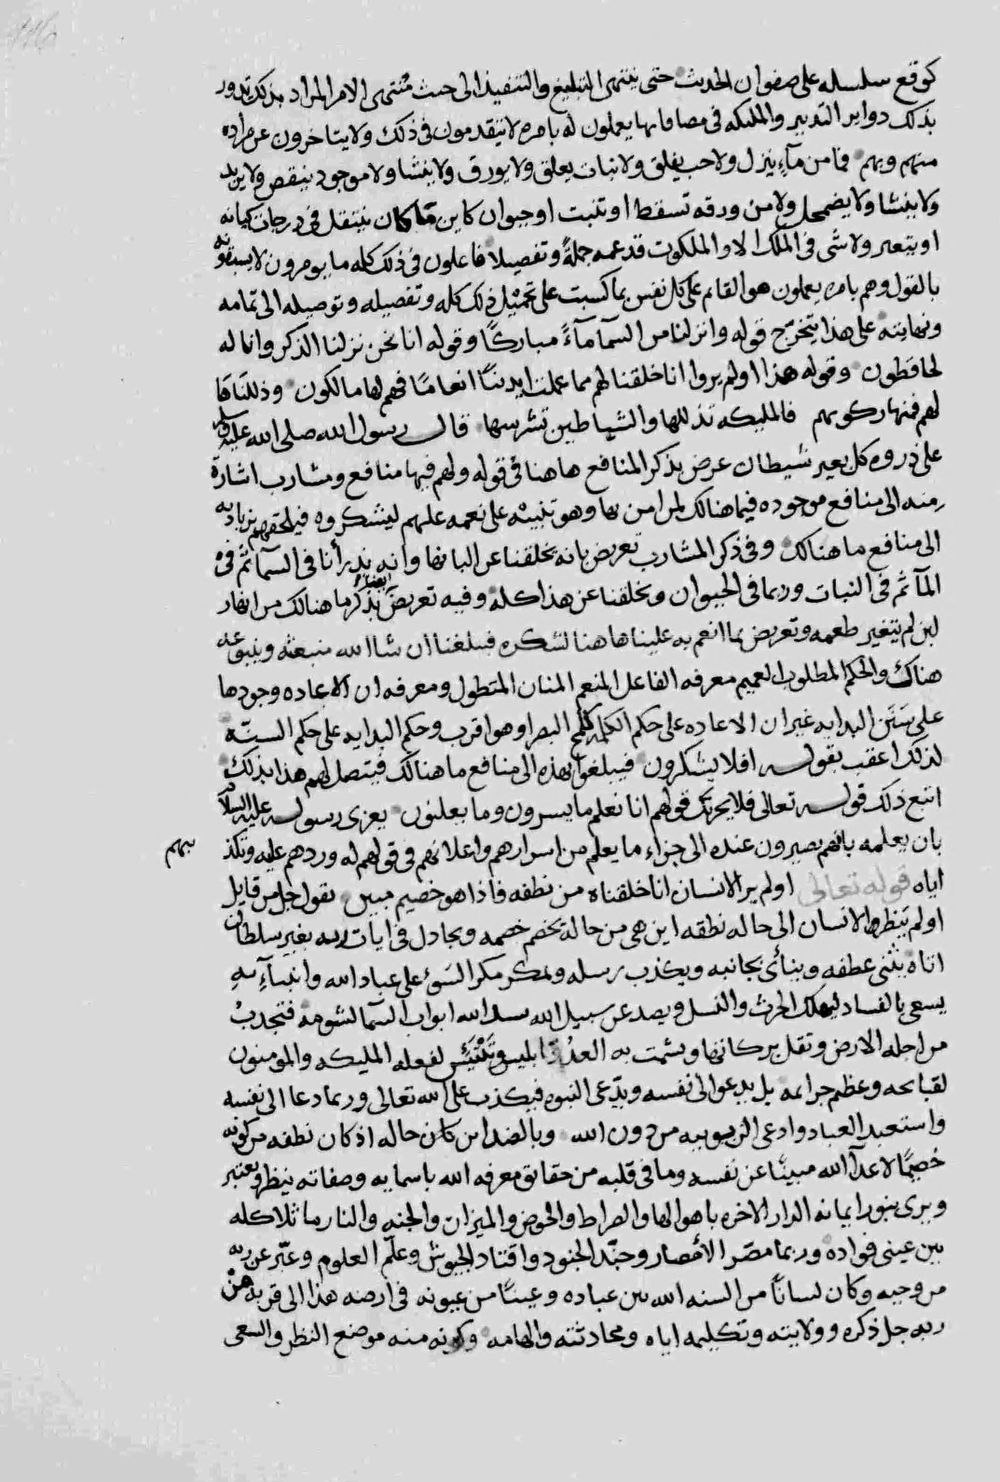 كوقع سلسله على صفوان الحديث حتى ينتهى التبليغ والتنفيذ الى حيث مُنتهى الامر المراد بذلك تدور
بذلك دواير التدبير والمليكه فى مصافاتها يعملون له بامره لا يتقدمون فى ذلك ولا يتاخرون عن مراده
منهم وبهم فما من مآءٍ ينزل ولا حب يفلق ولا نبات يعلق ولا يورق ولا ينشا ولا موجود ينقص ولا يزيد
ولا ينشا ولا يضمحل ولا من ورقه تسقط او تنبت او حيوان كاين ما كان ينتقل فى درجات كيانه
او يتعبر ولا شى فى الملك الا والملكوت قد عمه جملةً وتفصيلا فاعلون فى ذلك كله ما يومرون لا يسبقونه
بالقول وهم بامره يعملون هو القائم على كل نفس بما كسبت على تجميل ذلك كله وتفصيله وتوصيله الى تمامه
ونهايته على هذا يتخرّج قوله وانزلنا من السماء مآءً مباركًا وقوله انا نحن نزلنا الذكر وانا له
لحافظون وقوله هذا اولم يروا انا خلقنا لهم مما عملت ايدينآ انعامًا فهم لها مالكون وذللناها
لهم فمنها ركوبهم فالمليكه تذللها والشياطين تشرسها قال رسول الله صلى الله عليه وسلم
على ذروه كل بعير شيطان عرض بذكر المنافع هاهنا فى قوله ولهم فيها منافع ومشارب اشارة
منه الى منافع موجوده فيما هنالك لمن امن بها وهو تنبيه على نعمه عليهم ليشكروه فيلحقهم بزياده
الى منافع ما هنالك وفى ذكر المشارب تعريض بانه يخلقنا عن البانها وانه يذرأنا فى السمآ ثم فى
المآ ثم فى النبات وربما فى الحيوان ويخلقنا عن هذا كله وفيه تعريض ايضا بذكر ما هنالك من انهار
لبن لم يتغير طعمه وتعريض بما انعم به علينا هاهنا لنشكره فيبلغنا ان شا الله منبعثه وينبوعه
هناك والحكم المطلوب العميم معرفه الفاعل المنعم المنان المتطول ومعرفه ان الاعاده وجودها
على سَنَن البدايه غير ان الاعاده على حكم الكلمه كلمح البصر او هو اقرب وحكم البدايه على حكم السنّة
لذلك اعقب بقوله افلا يشكرون فيبلغوا بهذه الى منافع ما هنالك فيتصل لهم هذا بذلك
اتبع ذلك قوله تعالى فلا يحزنك قولهم انا نعلم ما يسرون وما يعلنون يعزى رسوله عليه السلم
بان يعلمه بانهم يصيرون عنده الى جزاء ما يعلم من اسرارهم واعلانهم فى قولهم له وردهم عليه وتكذيبهم
اياه قوله تعالى اولم ير الانسان انا خلقناه من نطفه فاذا هو خصيم مبين يقول جل من قايل
اولم ينظر الانسان الى حاله نطفه اين هى من حاله تخصم خصمه ويجادل فى ايات ربه بغير سلطان
اتاه يثنى عطفه وينأى بجانبه ويكذب رسله ويمكر مكر السَىء على عباد الله وانبيآءِ يه
يسعى بالفساد ليهلك الحرث والنسل ويصد عن سبيل الله سد الله ابواب السما لشومه فتجدب
من اجله الارض وتقل بركاتها ويشمت به العدوّ ابليس وتبتئس لفعله المليكه والمومنون
لقبايحه وعظم جرايمه بل يدعوا الى نفسه ويدّعى النبوه فيكذب على الله تعالى وربما دعا الى نفسه
واستعبد العباد وادعى الربوبيه من دون الله وبالضد اين كان حاله اذ كان نطفه من كونه
خصيمًا لاعدآ الله مبينًا عن نفسه وما فى قلبه من حقايق معرفه الله باسمايه وصفاته ينظر ويعتبر
ويرى بنور ايمانه الدار الاخره باهوالها والصراط والحوض والميزان والجنه والنار ماثلا كله
بين عينى فواده وربما مصّر الأمصار وجنّد الجنود واقتاد الجيوش وعلّم العلوم وعبّر عن ربه
من وحيه وكان لسانًا من السنه الله بين عباده وعينًا من عيونه فى ارضه هذا الى قربه من
ربه جل ذكره وولايته وتكليمه اياه ومحادثته والهامه وكونه منه موضع النظر والسعى